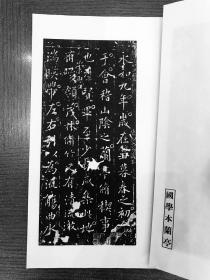 永和九年歲在癸丑暮春之初
于會稽山陰之蘭亭脩稧事
也羣賢畢至少長咸集此地
有峻領茂林脩竹又有清流激
湍暎帶左右引以為流觴曲水
國學本蘭亭